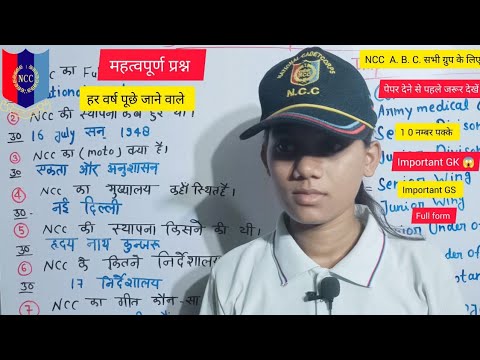 NCC
महत्वपूर्ण प्रश्न
हर वर्ष पूछे जाने वाले
CC का Fu
② NCC की स्थापना कब हुई थी।
उ० 16 July सन् 1948
③ NCC का (moto) क्या है।
उ० एकता और अनुशासन
④ NCC का मुख्यालय कहाँ स्थित है।
उ०- नई दिल्ली
⑤ NCC की स्थापना किसने की थी।
उ० हृदय नाथ कुन्जरू
⑥ NCC के कितने निर्देशालय
उ० 17 निर्देशालय
⑦ NCC का गीत कौन-सा
NATIONAL CADET CORPS
NCC
N.C.C
NCC A. B. C. सभी ग्रुप के लिए
पेपर देने से पहले जरूर देखें
Army medical
1 0 नम्बर पक्के
Important GK 😱
Senior Wing
Important GS
Junior Wing
Full form
Under of